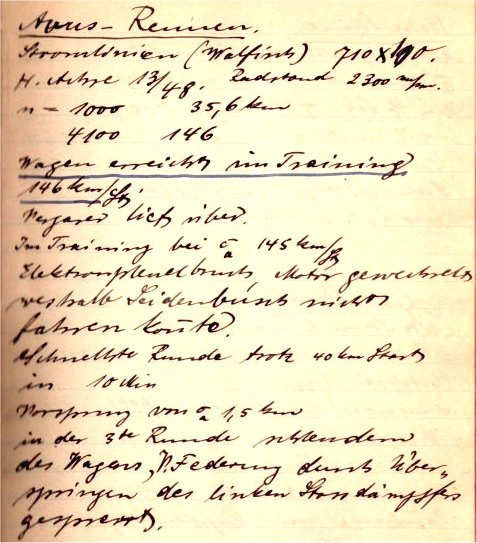 Avus-Rennen.
Stromlinien (Walfisch) 710 x 90.
H. Achse 13/48. Radstand 2300 m/m.
n = 1000 35,6 km
4100 146
Wagen erreicht im Training
146 km/St.
Vergaser lief über.
Im Training bei 145 km/St
Elektronpleuelbruch, Motor gewechselt
weshalb Seidenbusch nicht
fahren konnte.
Schnellste Runde trotz 40 km Start
in 10 Min
Vorsprung von 1,5 km
in der 3te Runde schleudern
des Wagens, V. Federung durch Über-
springen des linken Stossdämpffers
gesperrt.